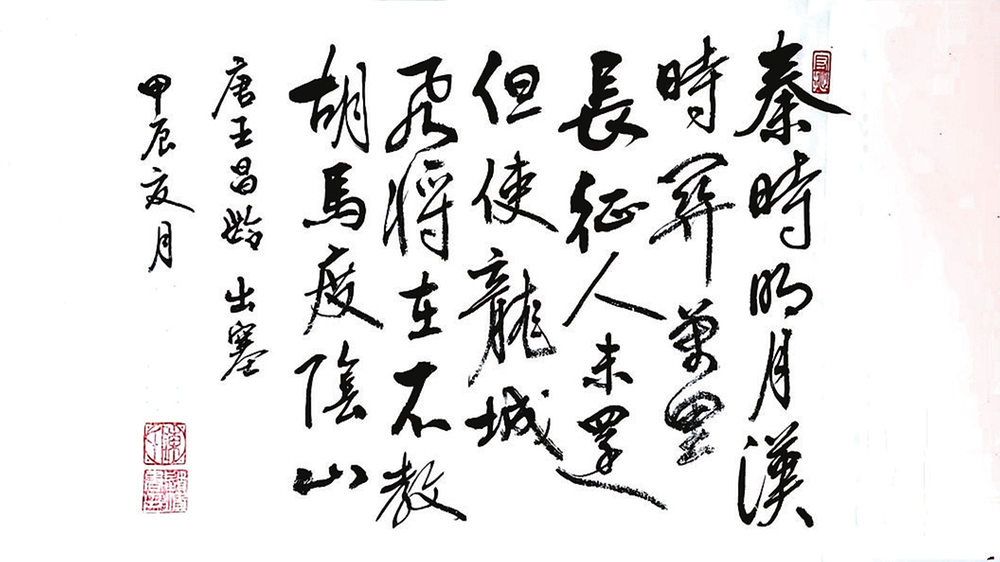 秦時明月漢
時関萬里
長征人未還
但使龍城
飛將在不教
胡馬度陰山
唐王昌齡出塞
甲辰夏月